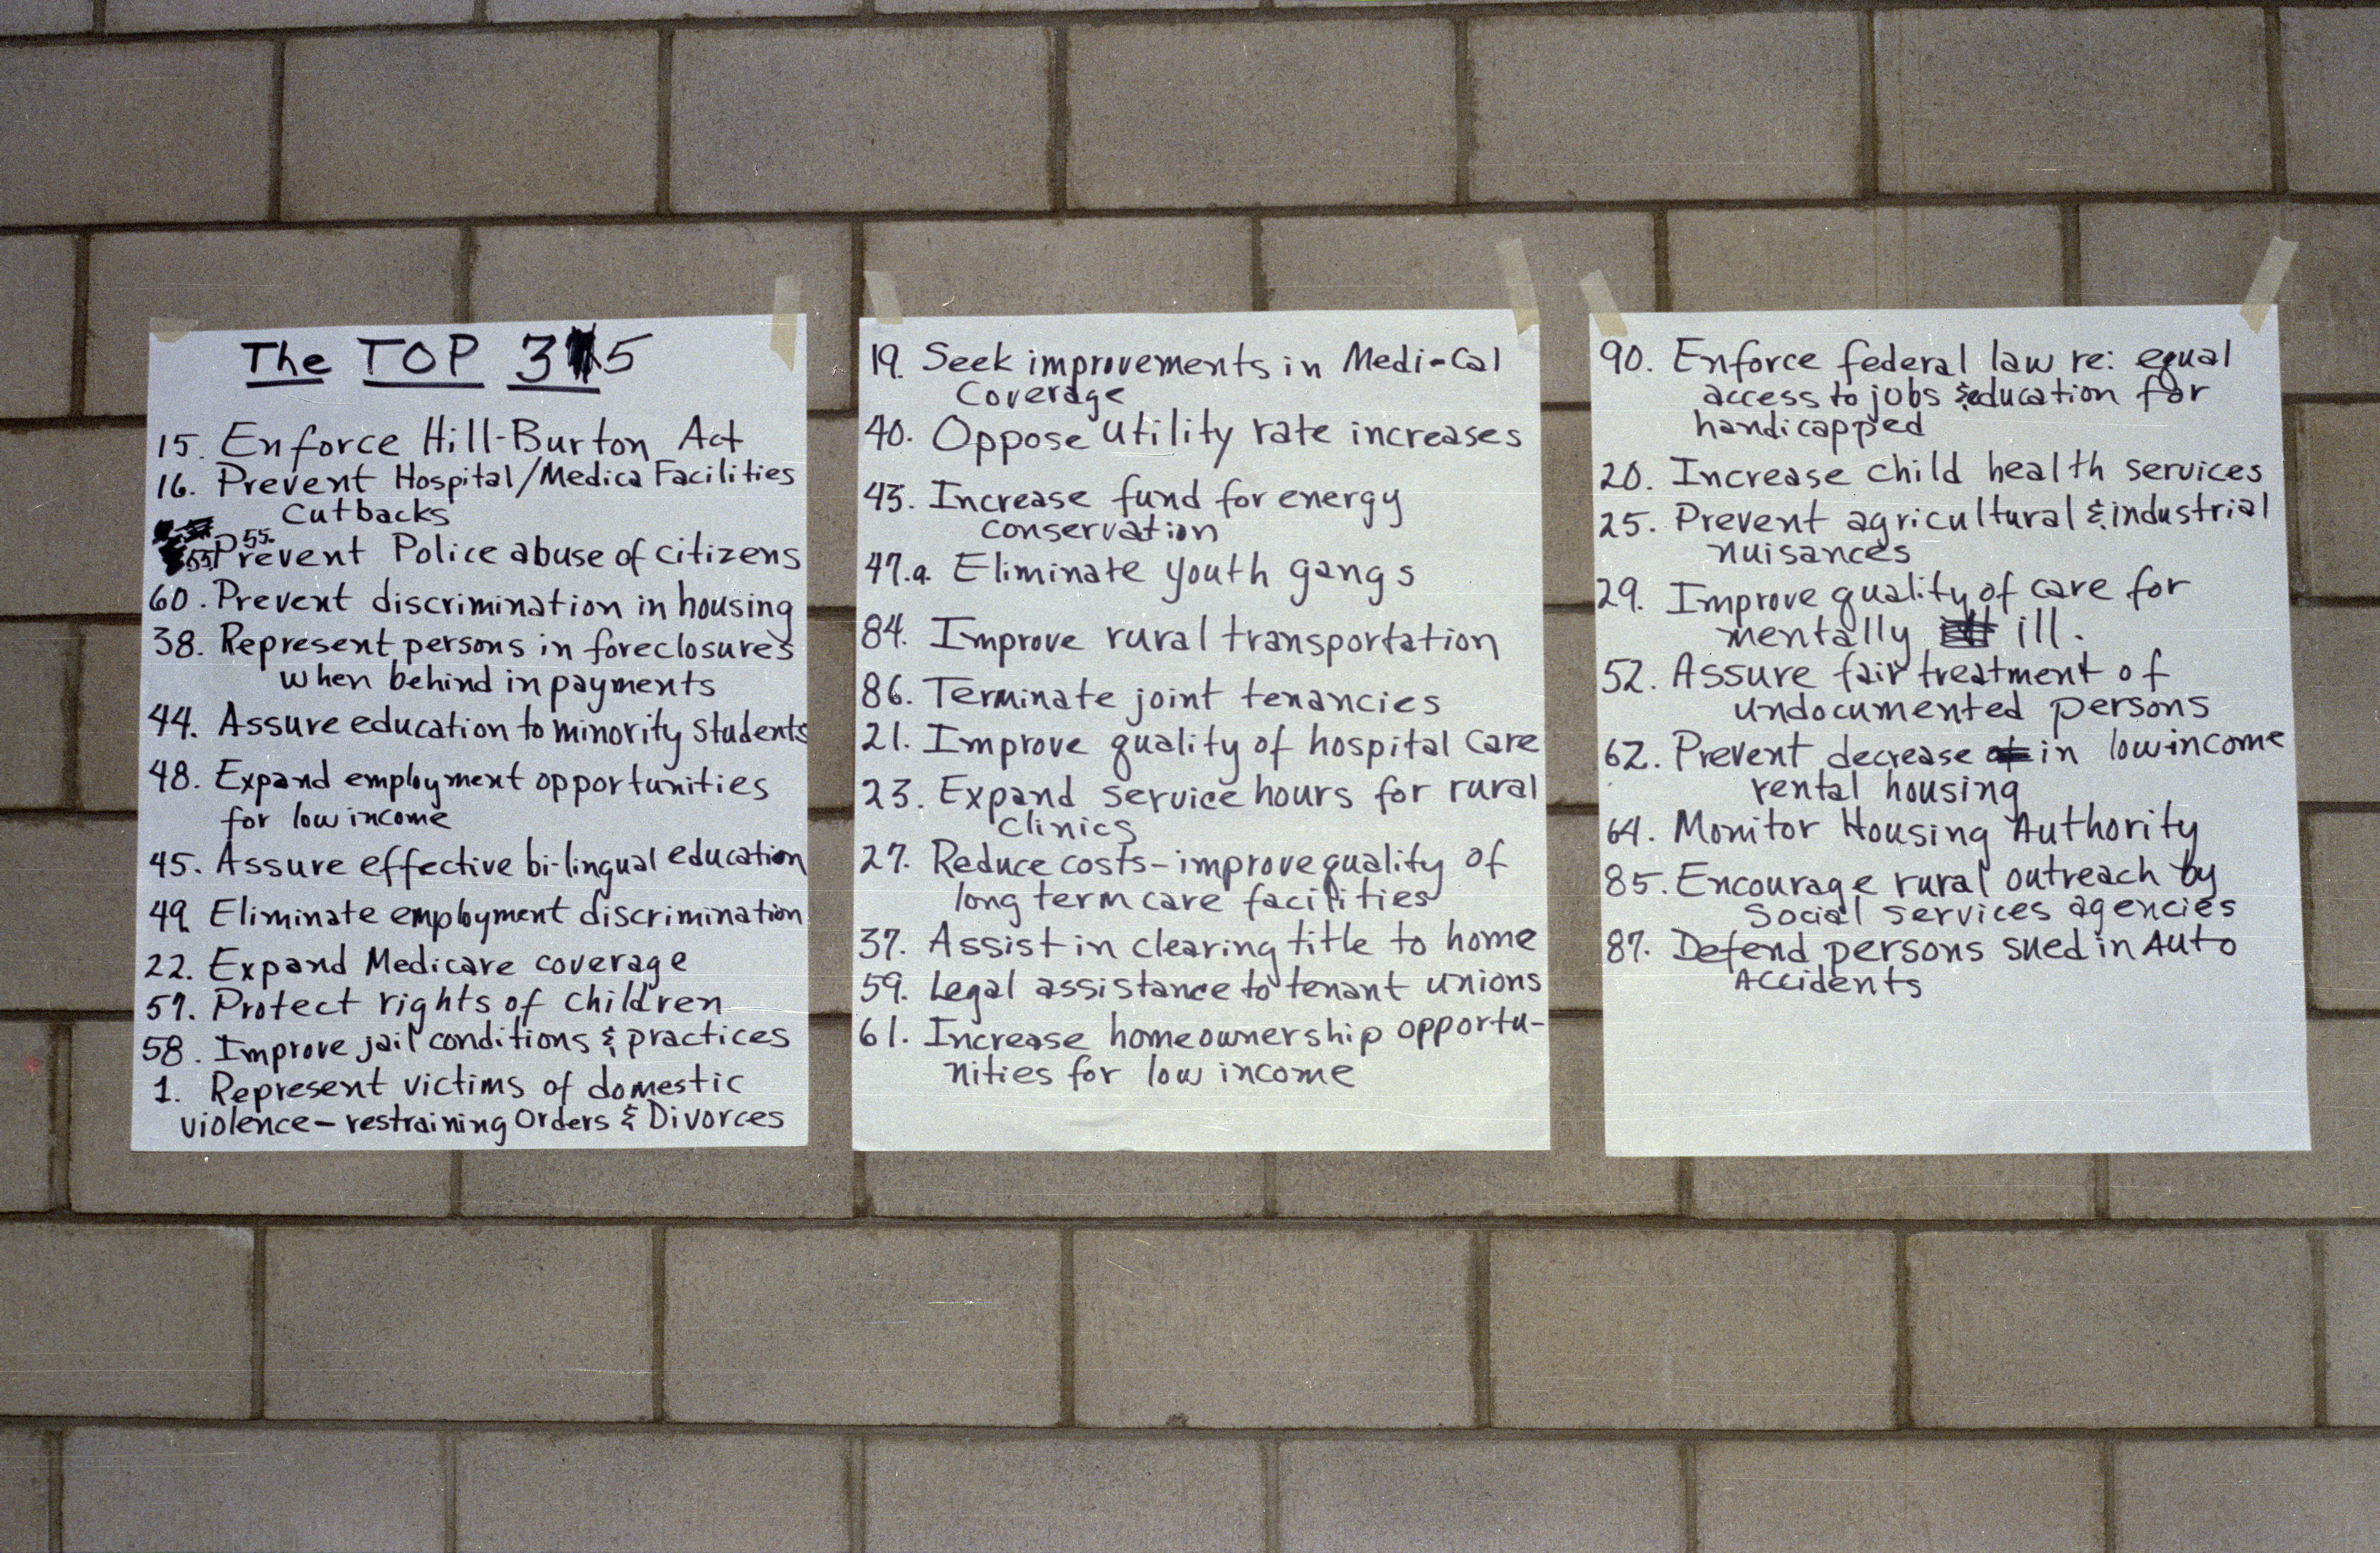 The TOP 35
15. Enforce Hill-Burton Act
16. Prevent Hospital/Medica Facilities
Cutbacks
55.
55. Prevent Police abuse of citizens
60. Prevent discrimination in housing
38. Represent persons in foreclosures
when behind in payments
44. Assure education to minority Students
48. Expand employment opportunities
for low income
45. Assure effective bi-lingual education
49. Eliminate employment discrimination
22. Expand Medicare coverage
57. Protect rights of children
58. Improve jail conditions & practices
1. Represent victims of domestic
violence - restraining Orders & Divorces
19. Seek improvements in Medi-Cal
Coverage
40. Oppose Utility rate increases
43. Increase fund for energy
conservation
47.a. Eliminate youth gangs
84. Improve rural transportation
86. Terminate joint tenancies
21. Improve quality of hospital care
23. Expand service hours for rural
clinics
27. Reduce costs - improve quality of
long term care facilities
37. Assist in clearing title to home
59. Legal assistance to tenant unions
61. Increase homeownership opportu-
nities for low income
90. Enforce federal law re: equal
access to jobs & education for
handicapped
20. Increase child health services
25. Prevent agricultural & industrial
nuisances
29. Improve quality of care for
mentally ill.
52. Assure fair treatment of
undocumented persons
62. Prevent decrease in low income
rental housing
64. Monitor Housing Authority
85. Encourage rural outreach by
Social services agencies
87. Defend persons sued in Auto
Accidents